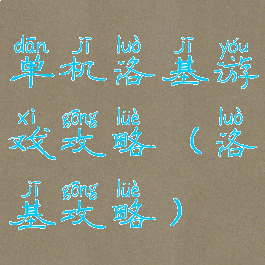 dān jī luò jī yóu
单机洛基游
xì gōng lüè luò
戏攻略(洛
jī gōng lüè
基攻略)